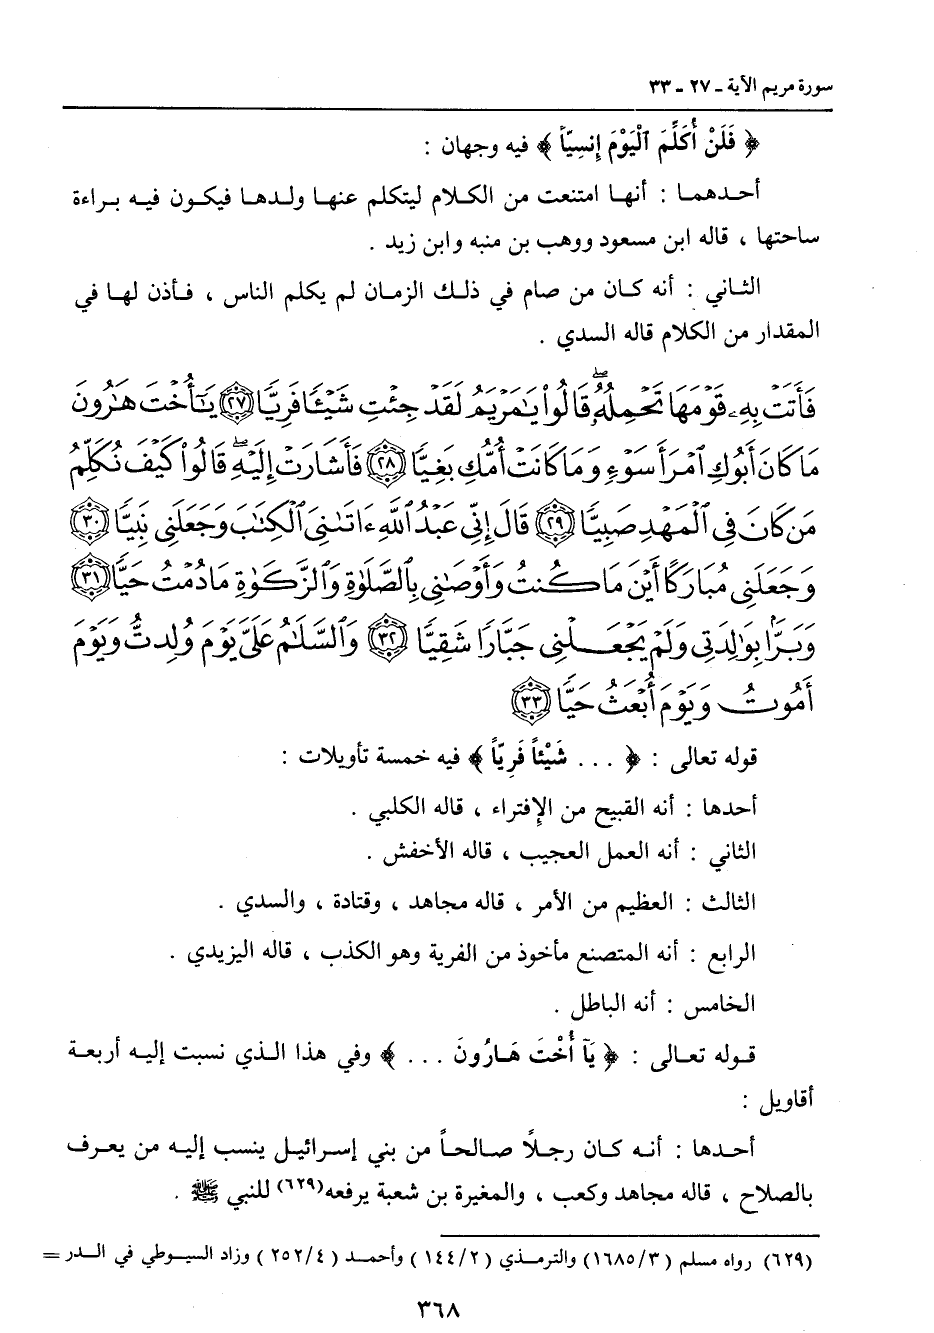 سورة مريم الآية ـ ٢٧ ـ ٣٣
﴿ فَلَنْ أُكَلِّمَ الْيَوْمَ إِنسِيّاً ﴾ فيه وجهان :
أحدهما : أنها امتنعت من الكلام ليتكلم عنها ولدها فيكون فيه براءة
ساحتها ، قاله ابن مسعود ووهب بن منبه وابن زيد .
الثاني : أنه كان من صام في ذلك الزمان لم يكلم الناس ، فأذن لها في
المقدار من الكلام قاله السدي .
فَأَتَتْ بِهِۦ قَوْمَهَا تَحْمِلُهُۥ ۖ قَالُوا۟ يَٰمَرْيَمُ لَقَدْ جِئْتِ شَيْـًٔا فَرِيًّا ﴿٢٧﴾ يَٰٓأُخْتَ هَٰرُونَ
مَا كَانَ أَبُوكِ ٱمْرَأَ سَوْءٍ وَمَا كَانَتْ أُمُّكِ بَغِيًّا ﴿٢٨﴾ فَأَشَارَتْ إِلَيْهِ ۖ قَالُوا۟ كَيْفَ نُكَلِّمُ
مَن كَانَ فِى ٱلْمَهْدِ صَبِيًّا ﴿٢٩﴾ قَالَ إِنِّى عَبْدُ ٱللَّهِ ءَاتَىٰنِىَ ٱلْكِتَٰبَ وَجَعَلَنِى نَبِيًّا ﴿٣٠﴾
وَجَعَلَنِى مُبَارَكًا أَيْنَ مَا كُنتُ وَأَوْصَٰنِى بِٱلصَّلَوٰةِ وَٱلزَّكَوٰةِ مَا دُمْتُ حَيًّا ﴿٣١﴾
وَبَرًّۢا بِوَٰلِدَتِى وَلَمْ يَجْعَلْنِى جَبَّارًا شَقِيًّا ﴿٣٢﴾ وَٱلسَّلَٰمُ عَلَىَّ يَوْمَ وُلِدتُّ وَيَوْمَ
أَمُوتُ وَيَوْمَ أُبْعَثُ حَيًّا ﴿٣٣﴾
قوله تعالى : ﴿ . . . شَيْئاً فَرِيّاً ﴾ فيه خمسة تأويلات :
أحدها : أنه القبيح من الإفتراء ، قاله الكلبي .
الثاني : أنه العمل العجيب ، قاله الأخفش .
الثالث : العظيم من الأمر ، قاله مجاهد ، وقتادة ، والسدي .
الرابع : أنه المتصنع مأخوذ من الفرية وهو الكذب ، قاله اليزيدي .
الخامس : أنه الباطل .
قوله تعالى : ﴿ يَآ أُخْتَ هَارُونَ . . . ﴾ وفي هذا الذي نسبت إليه أربعة
أقاويل :
أحدها : أنه كان رجلًا صالحاً من بني إسرائيل ينسب إليه من يعرف
بالصلاح ، قاله مجاهد وكعب ، والمغيرة بن شعبة يرفعه(٦٢٩) للنبي ﷺ .
(٦٢٩) رواه مسلم (١٦٨٥/٣) والترمذي (١٤٤/٢) وأحمد (٢٥٢/٤) وزاد السيوطي في الدر =
٣٦٨